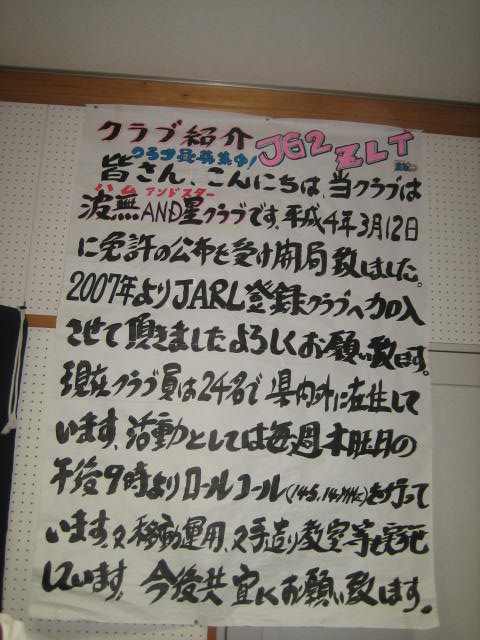 クラブ紹介 JG2ZLT
クラブ員募集中!
皆さん、こんにちは、当クラブは
ハム アンドスター
波無AND星クラブです。平成4年3月12日
に免許の公布を受け開局致しました。
2007年よりJARL登録クラブへ加入
させて頂きましたよろしくお願い致します。
現在クラブ員は24名で県内外に在住して
います。活動としては毎週木曜日の
午後9時よりロールコール(145.14MHz)を行って
います。又移動運用、又手造り教室等も実施
しています。今後共宜しくお願い致します。